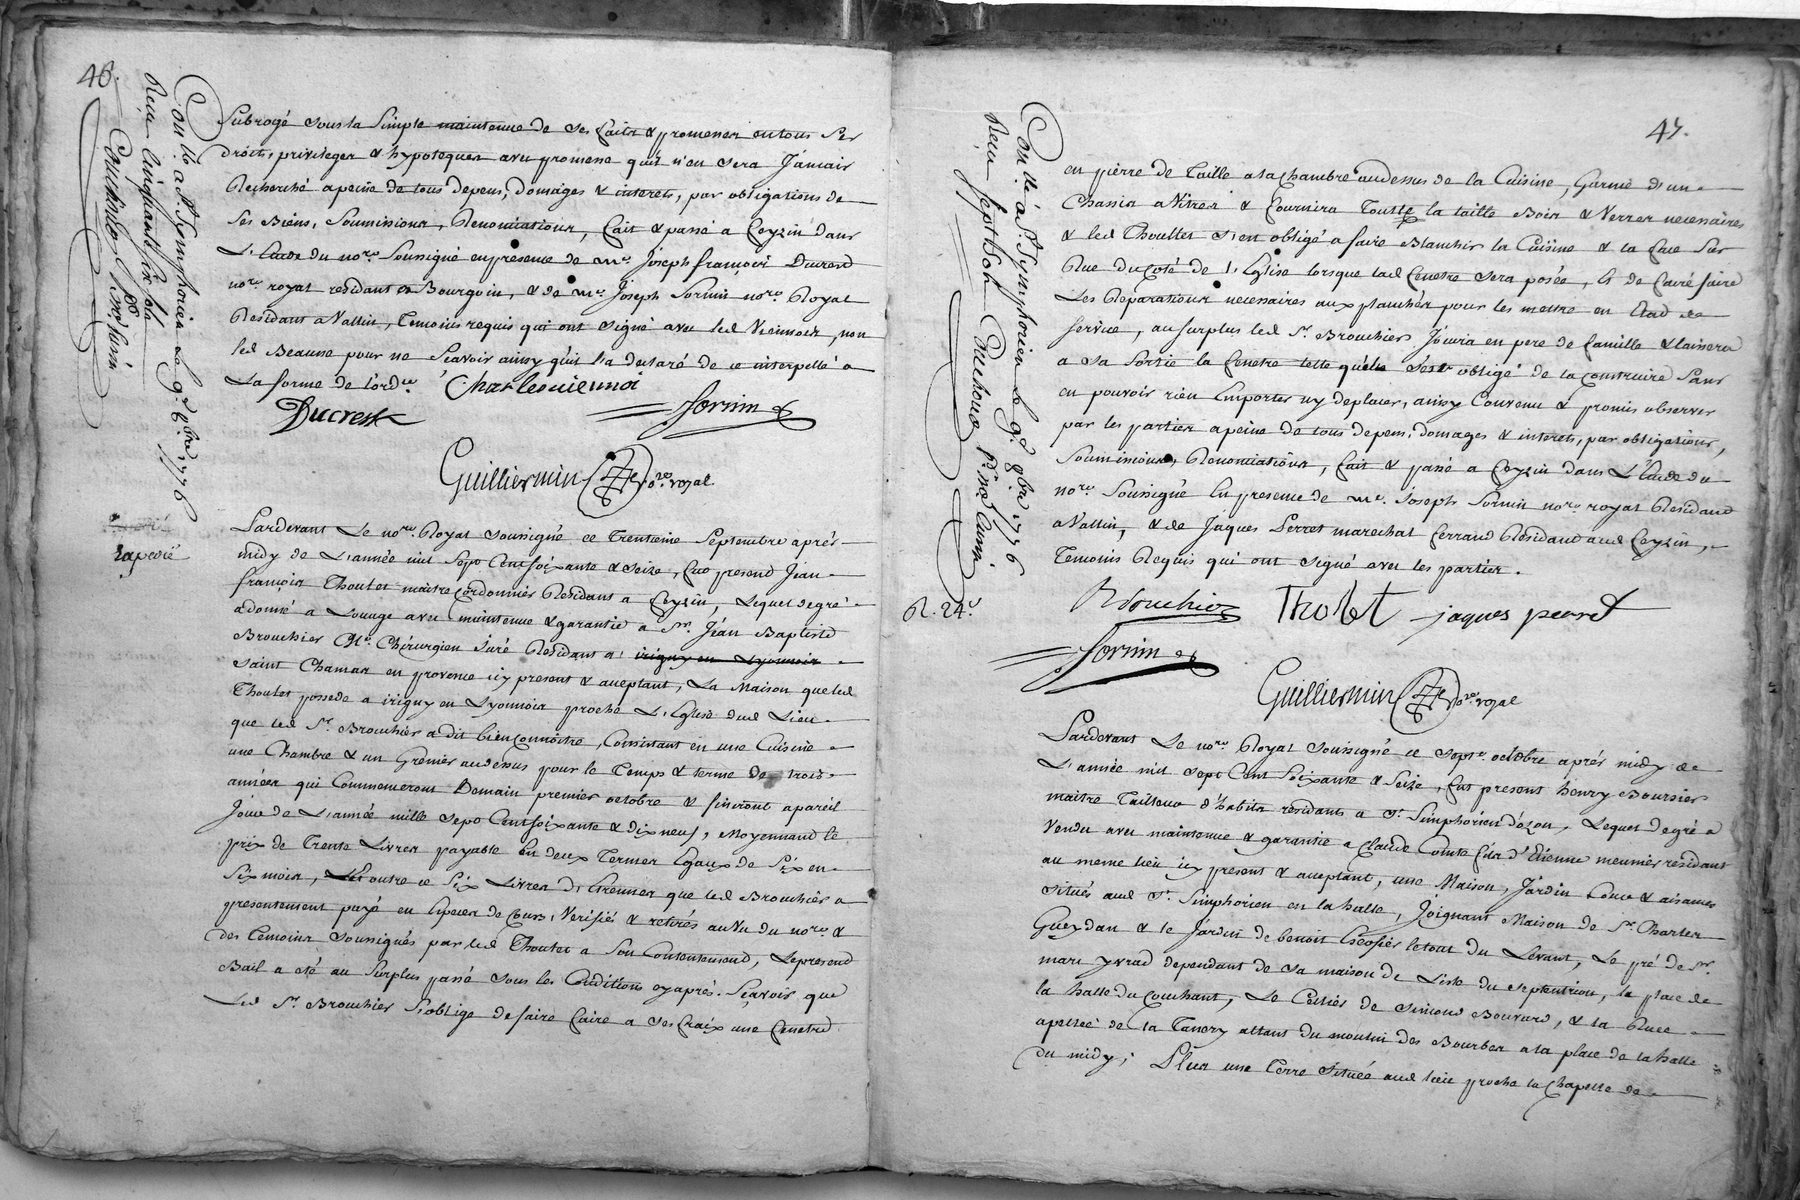 46.
Con.llé a St. Simphorien Le 9e 8bre 1776
Reçu Cinquante six sols
Subrogé sous la Simple maintenue de ses faits & promesses en tous ses
droits, privileges & hypoteques avec promesse qu'il n'en sera Jamais
Recherché a peine de tous depens, domages & interets, par obligations de
ses Biens, Soumissions, Renonciations, fait & passé a feyzin dans
L'Etude du nore. Soussigné en presence de me. Joseph françois Ducrest
nore. royal residant en Bourgoin, & de me. Joseph Sornin nore. Royal
Residant a Vallin, Temoins requis qui ont signé avec led Viennois, non
led Beaune pour ne sçavoir ainsy qu'il l'a declaré de ce interpellé a
La forme de l'ordce
Charle viennoi
Ducrest
Sornin
Guilliermin nore. royal
Expedié
Pardevant Le nore. Royal soussigné ce Trentieme Septembre après
midy de L'année mil sept Cent soixante & seize, fut present Jean
françois Thoulet maitre Cordonnier Residant a feyzin, Lequel de gré
a donné a Louage avec maintenue & garantie a Sr. Jéan Baptiste
Brouchier Me. Chirurgien Juré Residant a irigny en Lyonnois
saint Chamas en provence icy present & acceptant, La Maison que led
Thoulet possede a irigny en Lyonnois proche L'Eglise dud Lieu
que led Sr. Brouchier a dit bien connoitre, Consistant en une Cuisine
une Chambre & un Grenier au dessus pour le Temps & terme de trois
années qui Commenceront Demain premier octobre & finiront a pareil
Jour de L'année mille sept Cent soixante & dix neuf, Moyennant le
prix de Trente Livres payable En deux Termes Egaux de Six en
Six mois, outre ce Six Livres d'Etrennes que led Brouchier a
presentement payé en Especes de Cours, Verifiés & retirés au Vu du nore. &
des Temoins soussignés par led Thoulet a son Contentement, Le present
Bail a eté au surplus passé sous les Conditions cy après. Sçavoir que
Led Sr. Brouchier s'oblige de faire faire a ses fraix une fenetre
47.
Con.llé a St. Symphorien Le 9e 8bre 1776
Reçu sept sols
en pierre de Taille a la chambre au dessus de la Cuisine, Garnie d'un
Chassis a Vitres & fournira Toutte la taille Bois & Verres necessaires
& led Thoullet s'est obligé a faire Blanchir la Cuisine & la face sur
Rue du coté de L'Eglise lorsque lad fenetre sera posée, & de faire faire
Les Reparations necessaires aux planchés pour les mettre en Etat de
service, au surplus led Sr. Brouchier Jouira en pere de famille & laissera
a sa sortie la fenetre telle qu'elle s'est obligé de la construire sans
en pouvoir rien Emporter ny deplacer, ainsy Convenu & promis observer
par les parties a peine de tous depens, domages & interets, par obligations,
Soumissions, Renonciations, fait & passé a feyzin dans L'Etude du
nore. Soussigné En presence de me. Joseph Sornin nore. royal Residant
a Vallin, & de Jaques Perret marechal ferrant Residant aud feyzin,
Temoins Requis qui ont signé avec les parties.
R. 24s.
Brouchier
Tholet
jaques perret
Sornin
Guilliermin nore. royal
Pardevant Le nore. Royal soussigné ce sept octobre après midy de
L'année mil sept Cent Soixante & Seize, fut present henry Boursier
maitre Tailleur d'habits residant a St. Simphorien d'ozon, Lequel de gré a
Vendu avec maintenue & garantie a Claude Comte fils d'Etienne meunier residant
au meme lieu icy present & acceptant, une Maison, Jardin Cour & aisances
situés aud St. Simphorien en la halle, Joignant Maison de Sr. Charles
Gueydan & le Jardin de benoit Crosier le tout du Levant, Le pré de Sr.
marc yvrad dependant de sa maison de Liste du septentrion, la place de
la halle du Couchant, Le Cellier de Simond Bouvard, & la Ruee
apellée de la Tanery allant du moulin des Bourbes a la place de la halle
du midy; Plus une Terre située aud lieu proche la Chapelle de